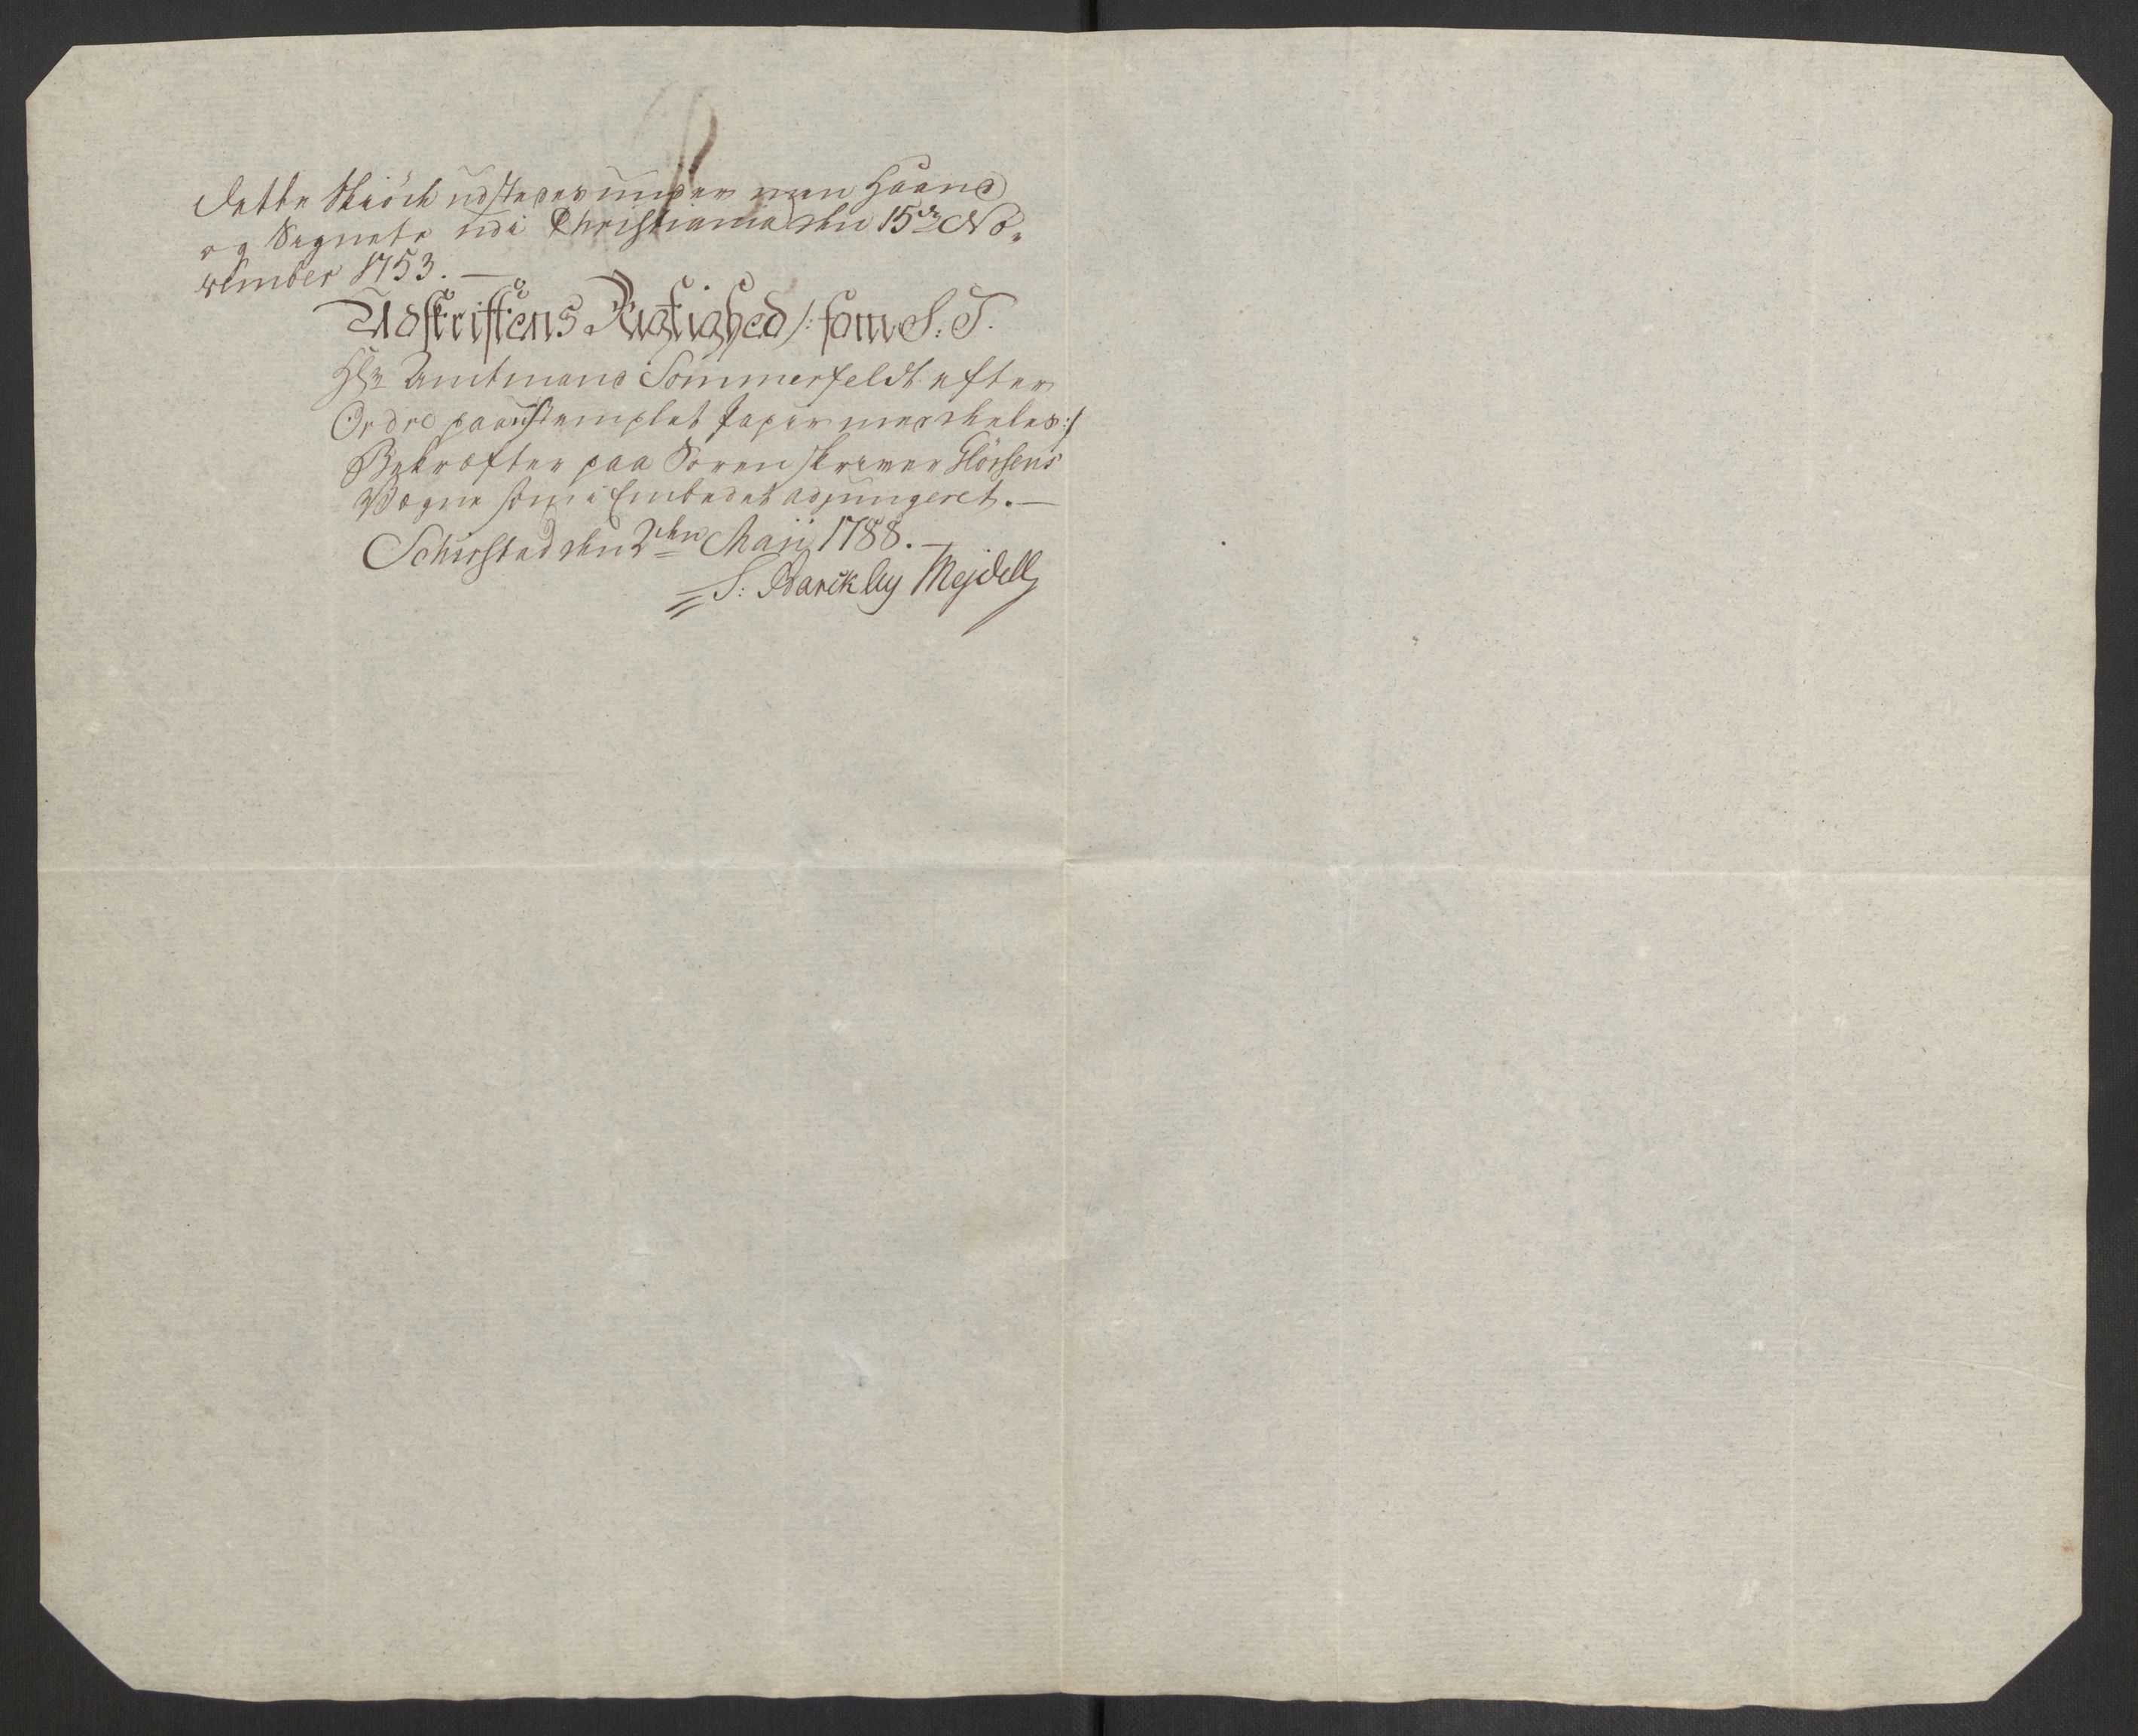 dette Skiöde udstædes under min Haand
og Signete udi Christiania den 15de No-
vember 1753. —
Udskriftens Rigtighed /: som S: T.
Hr: Amtmand Sommerfeldt efter
Ordre paa ustemplet Papier meddeles :/
Bekræfter paa Sorenskriver Flörsens
Vegne som i Embedet adjungeret. —
Schirstad den 2den Maji 1788. —
S: Barckley Mejdell